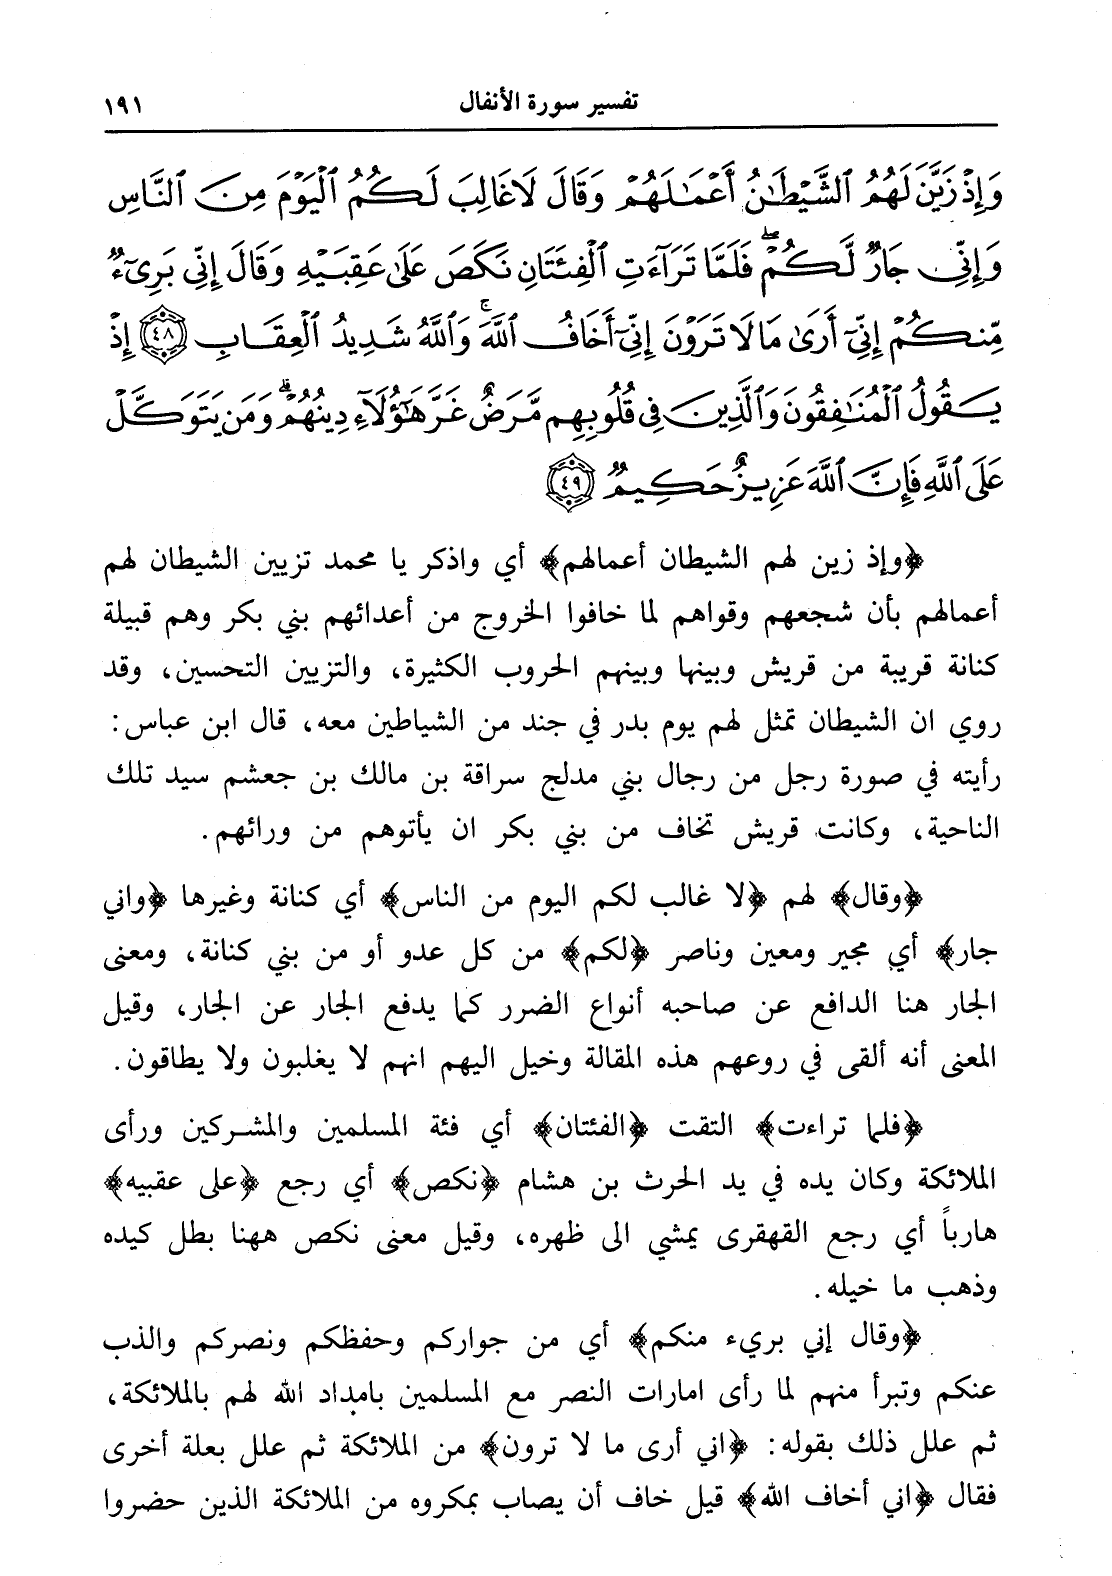 تفسير سورة الأنفال ١٩١
وَإِذْ زَيَّنَ لَهُمُ ٱلشَّيْطَٰنُ أَعْمَٰلَهُمْ وَقَالَ لَا غَالِبَ لَكُمُ ٱلْيَوْمَ مِنَ ٱلنَّاسِ
وَإِنِّى جَارٌ لَّكُمْ ۖ فَلَمَّا تَرَآءَتِ ٱلْفِئَتَانِ نَكَصَ عَلَىٰ عَقِبَيْهِ وَقَالَ إِنِّى بَرِىٓءٌ
مِّنكُمْ إِنِّىٓ أَرَىٰ مَا لَا تَرَوْنَ إِنِّىٓ أَخَافُ ٱللَّهَ ۚ وَٱللَّهُ شَدِيدُ ٱلْعِقَابِ ٤٨ إِذْ
يَقُولُ ٱلْمُنَٰفِقُونَ وَٱلَّذِينَ فِى قُلُوبِهِم مَّرَضٌ غَرَّ هَٰٓؤُلَآءِ دِينُهُمْ ۗ وَمَن يَتَوَكَّلْ
عَلَى ٱللَّهِ فَإِنَّ ٱللَّهَ عَزِيزٌ حَكِيمٌ ٤٩
﴿وإذ زين لهم الشيطان أعمالهم﴾ أي واذكر يا محمد تزيين الشيطان لهم
أعمالهم بأن شجعهم وقواهم لما خافوا الخروج من أعدائهم بني بكر وهم قبيلة
كنانة قريبة من قريش وبينها وبينهم الحروب الكثيرة، والتزيين التحسين، وقد
روي ان الشيطان تمثل لهم يوم بدر في جند من الشياطين معه، قال ابن عباس:
رأيته في صورة رجل من رجال بني مدلج سراقة بن مالك بن جعشم سيد تلك
الناحية، وكانت قريش تخاف من بني بكر ان يأتوهم من ورائهم.
﴿وقال﴾ لهم ﴿لا غالب لكم اليوم من الناس﴾ أي كنانة وغيرها ﴿واني
جار﴾ أي مجير ومعين وناصر ﴿لكم﴾ من كل عدو أو من بني كنانة، ومعنى
الجار هنا الدافع عن صاحبه أنواع الضرر كما يدفع الجار عن الجار، وقيل
المعنى أنه ألقى في روعهم هذه المقالة وخيل اليهم انهم لا يغلبون ولا يطاقون.
﴿فلما تراءت﴾ التقت ﴿الفئتان﴾ أي فئة المسلمين والمشركين ورأى
الملائكة وكان يده في يد الحرث بن هشام ﴿نكص﴾ أي رجع ﴿على عقبيه﴾
هارباً أي رجع القهقرى يمشي الى ظهره، وقيل معنى نكص ههنا بطل كيده
وذهب ما خيله.
﴿وقال إني بريء منكم﴾ أي من جواركم وحفظكم ونصركم والذب
عنكم وتبرأ منهم لما رأى امارات النصر مع المسلمين بامداد الله لهم بالملائكة،
ثم علل ذلك بقوله: ﴿اني أرى ما لا ترون﴾ من الملائكة ثم علل بعلة أخرى
فقال ﴿اني أخاف الله﴾ قيل خاف أن يصاب بمكروه من الملائكة الذين حضروا